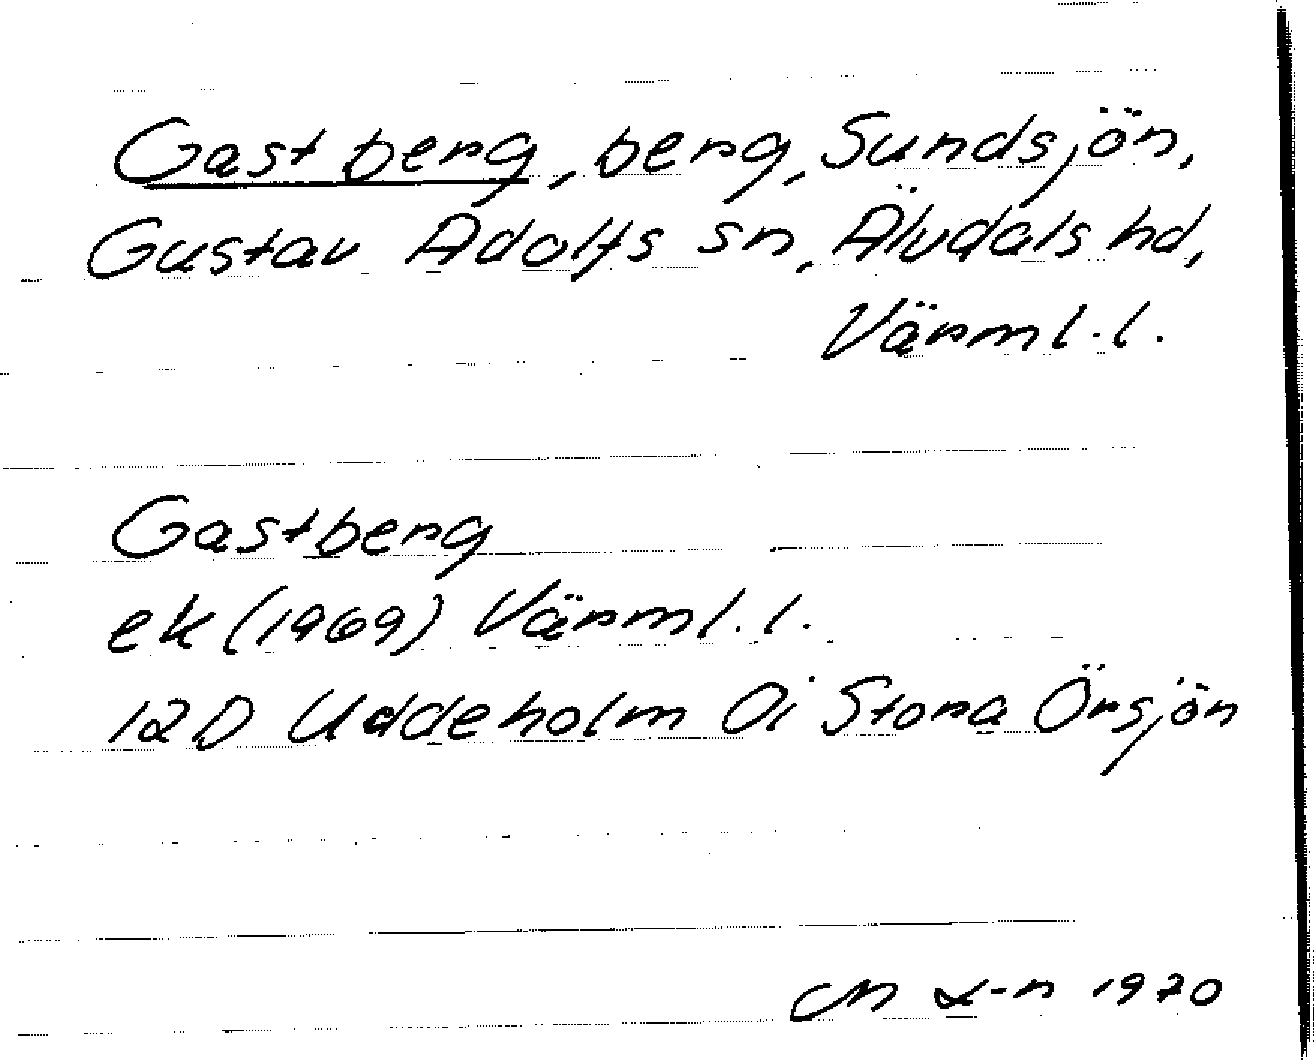 Gastberg, berg, Sundsjön,
Gustav Adolfs sn, Älvdals hd,
Värml.l.
Gastberg
ek (1969) Värml.l.
12D Uddeholm 0i Stora Örsjön
1970